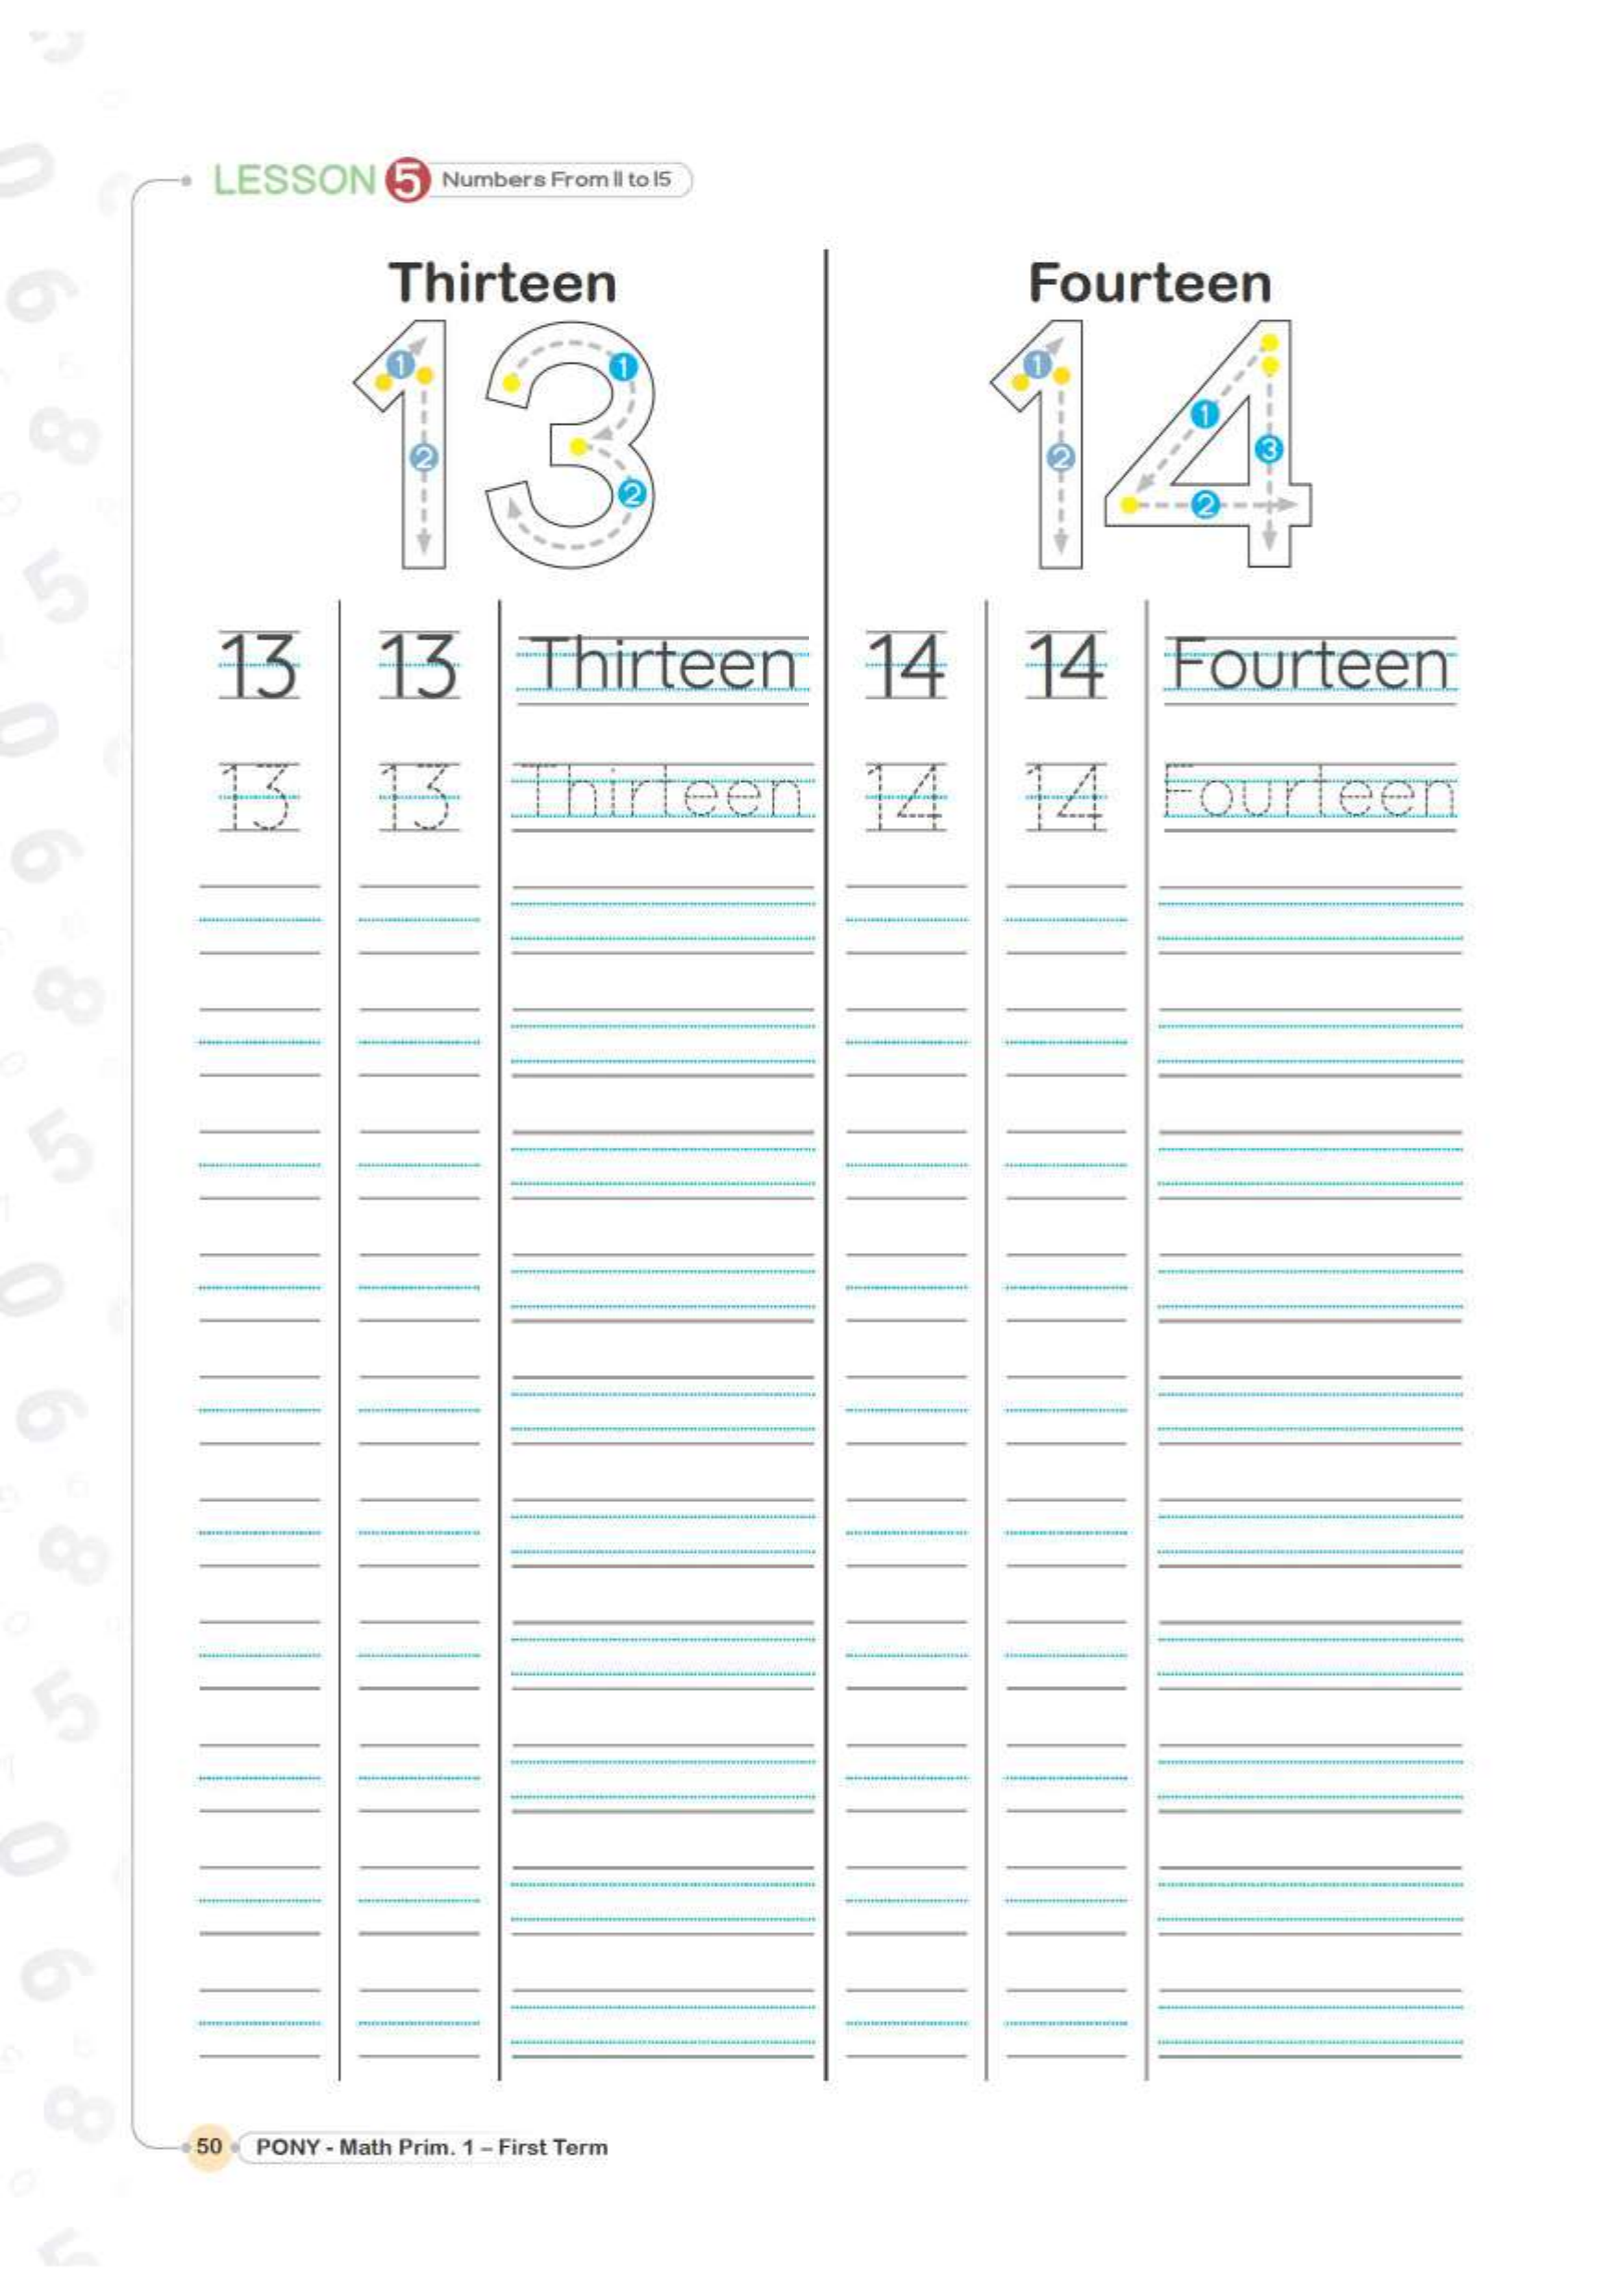 LESSON 5 Numbers From 11 to 15
Thirteen Fourteen
13 14
1 2 1 2 1 2 1 2 3
13 13 Thirteen 14 14 Fourteen
13 13 Thirteen 14 14 Fourteen
50 PONY - Math Prim. 1 – First Term